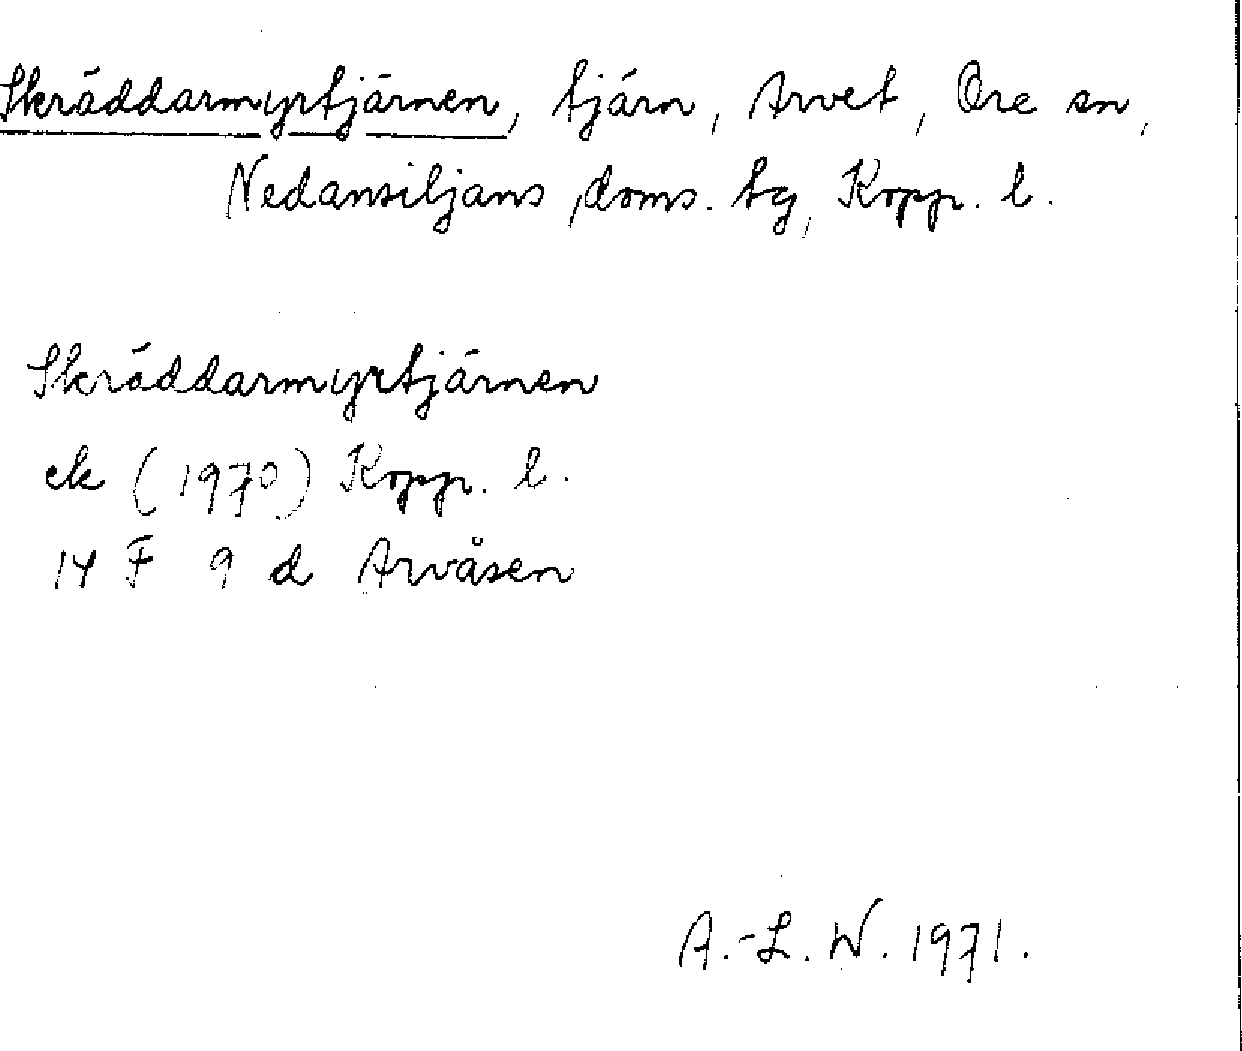 Skräddarmyrtjärnen, tjärn, Arvet, Ore sn,
Nedansiljans doms. tg, Kopp. l.
Skräddarmyrtjärnen
ek (1970) Kopp. l.
14 F 9 d Arvåsen
A.-L. W. 1971.